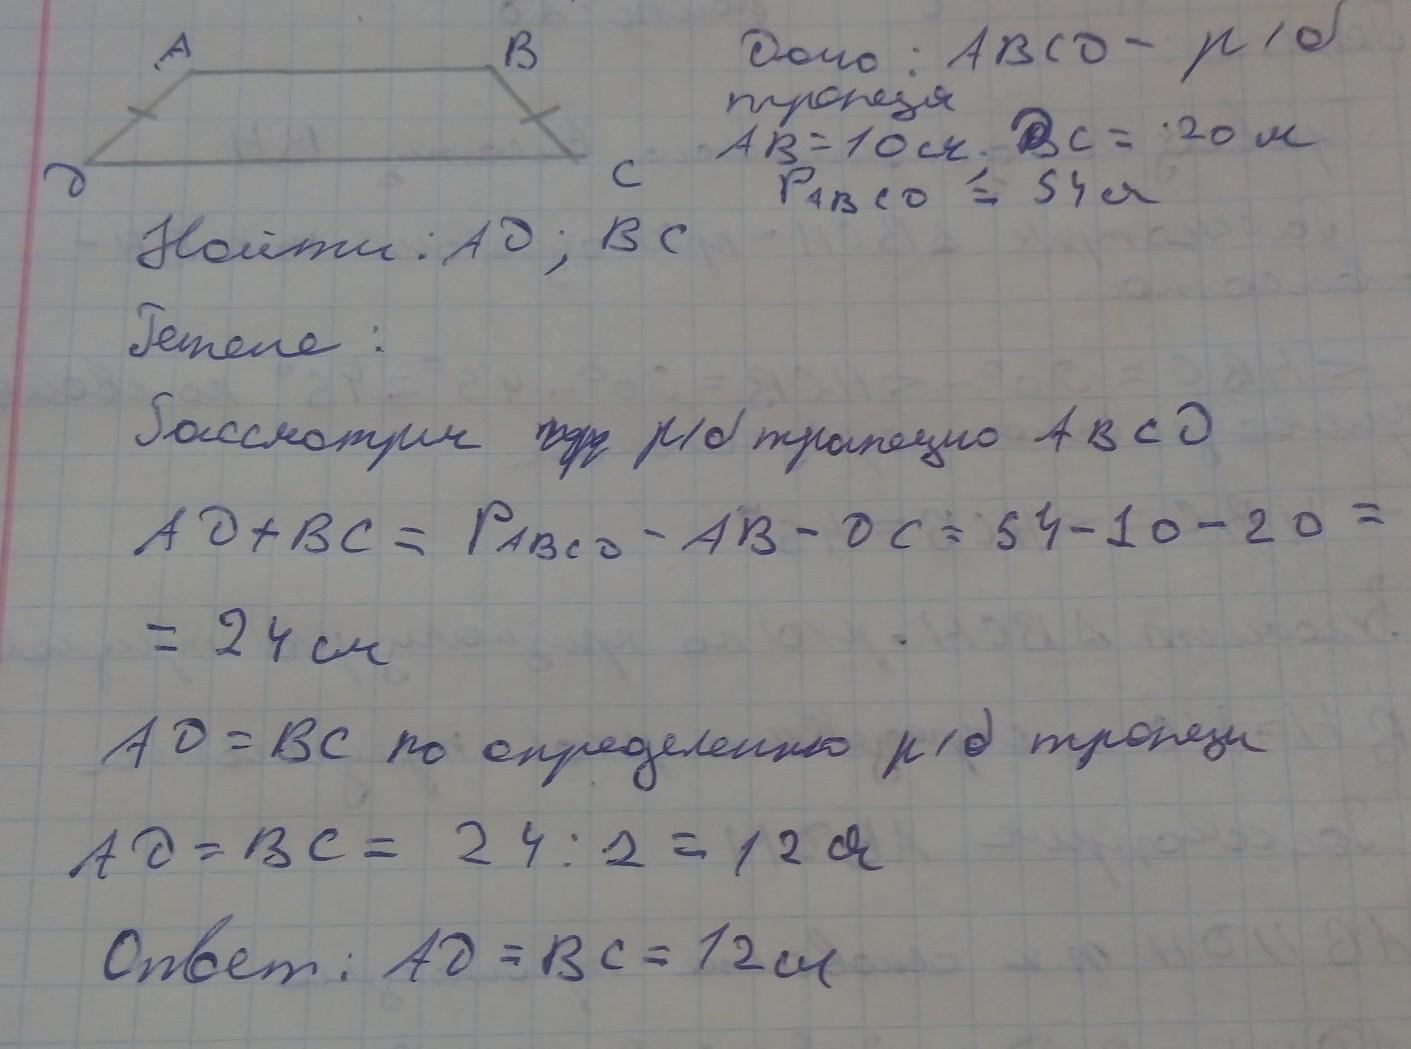 A B
Дано: ABCD - р/б
трапеця
AB=10см. DC= 20 м
D C
PABCD = 54см
Найти: AD; BC
Решене:
Рассмотрим р/б трапецию ABCD
AD+BC = PABCD - AB - DC = 54-10-20 =
= 24см
AD=BC по определению р/б трапеци
AD=BC= 24:2=12см
Ответ: AD=BC=12см